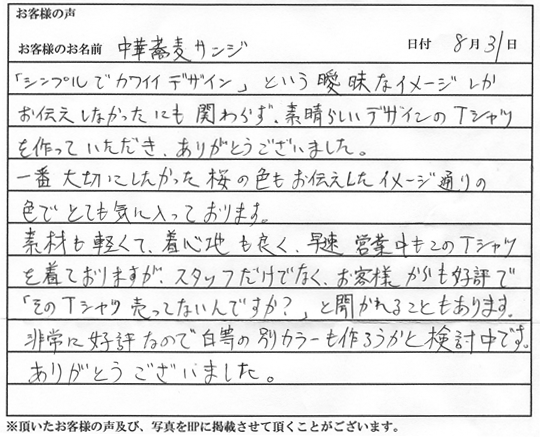 お客様の声
お客様のお名前 中華蕎麦サンジ 日付 8月31日
「シンプルでカワイイデザイン」という曖昧なイメージしか
お伝えしなかったにも関わらず、素晴らしいデザインのTシャツ
を作っていただき、ありがとうございました。
一番大切にしたかった桜の色もお伝えしたイメージ通りの
色でとても気に入っております。
素材も軽くて、着心地も良く、早速営業中もこのTシャツ
を着ておりますが、スタッフだけでなく、お客様からも好評で
「そのTシャツ売ってないんですか?」と聞かれることもあります。
非常に好評なので白等の別カラーも作ろうかと検討中です。
ありがとうございました。
※頂いたお客様の声及び、写真をHPに掲載させて頂くことがございます。